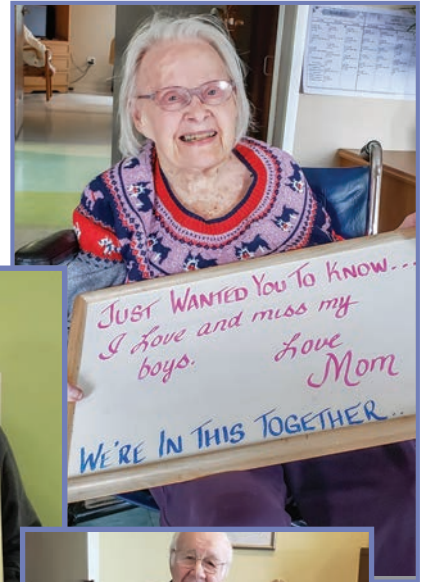 JUST WANTED YOU TO KNOW...
I Love and miss my
boys.
Love
Mom
WE'RE IN THIS TOGETHER..